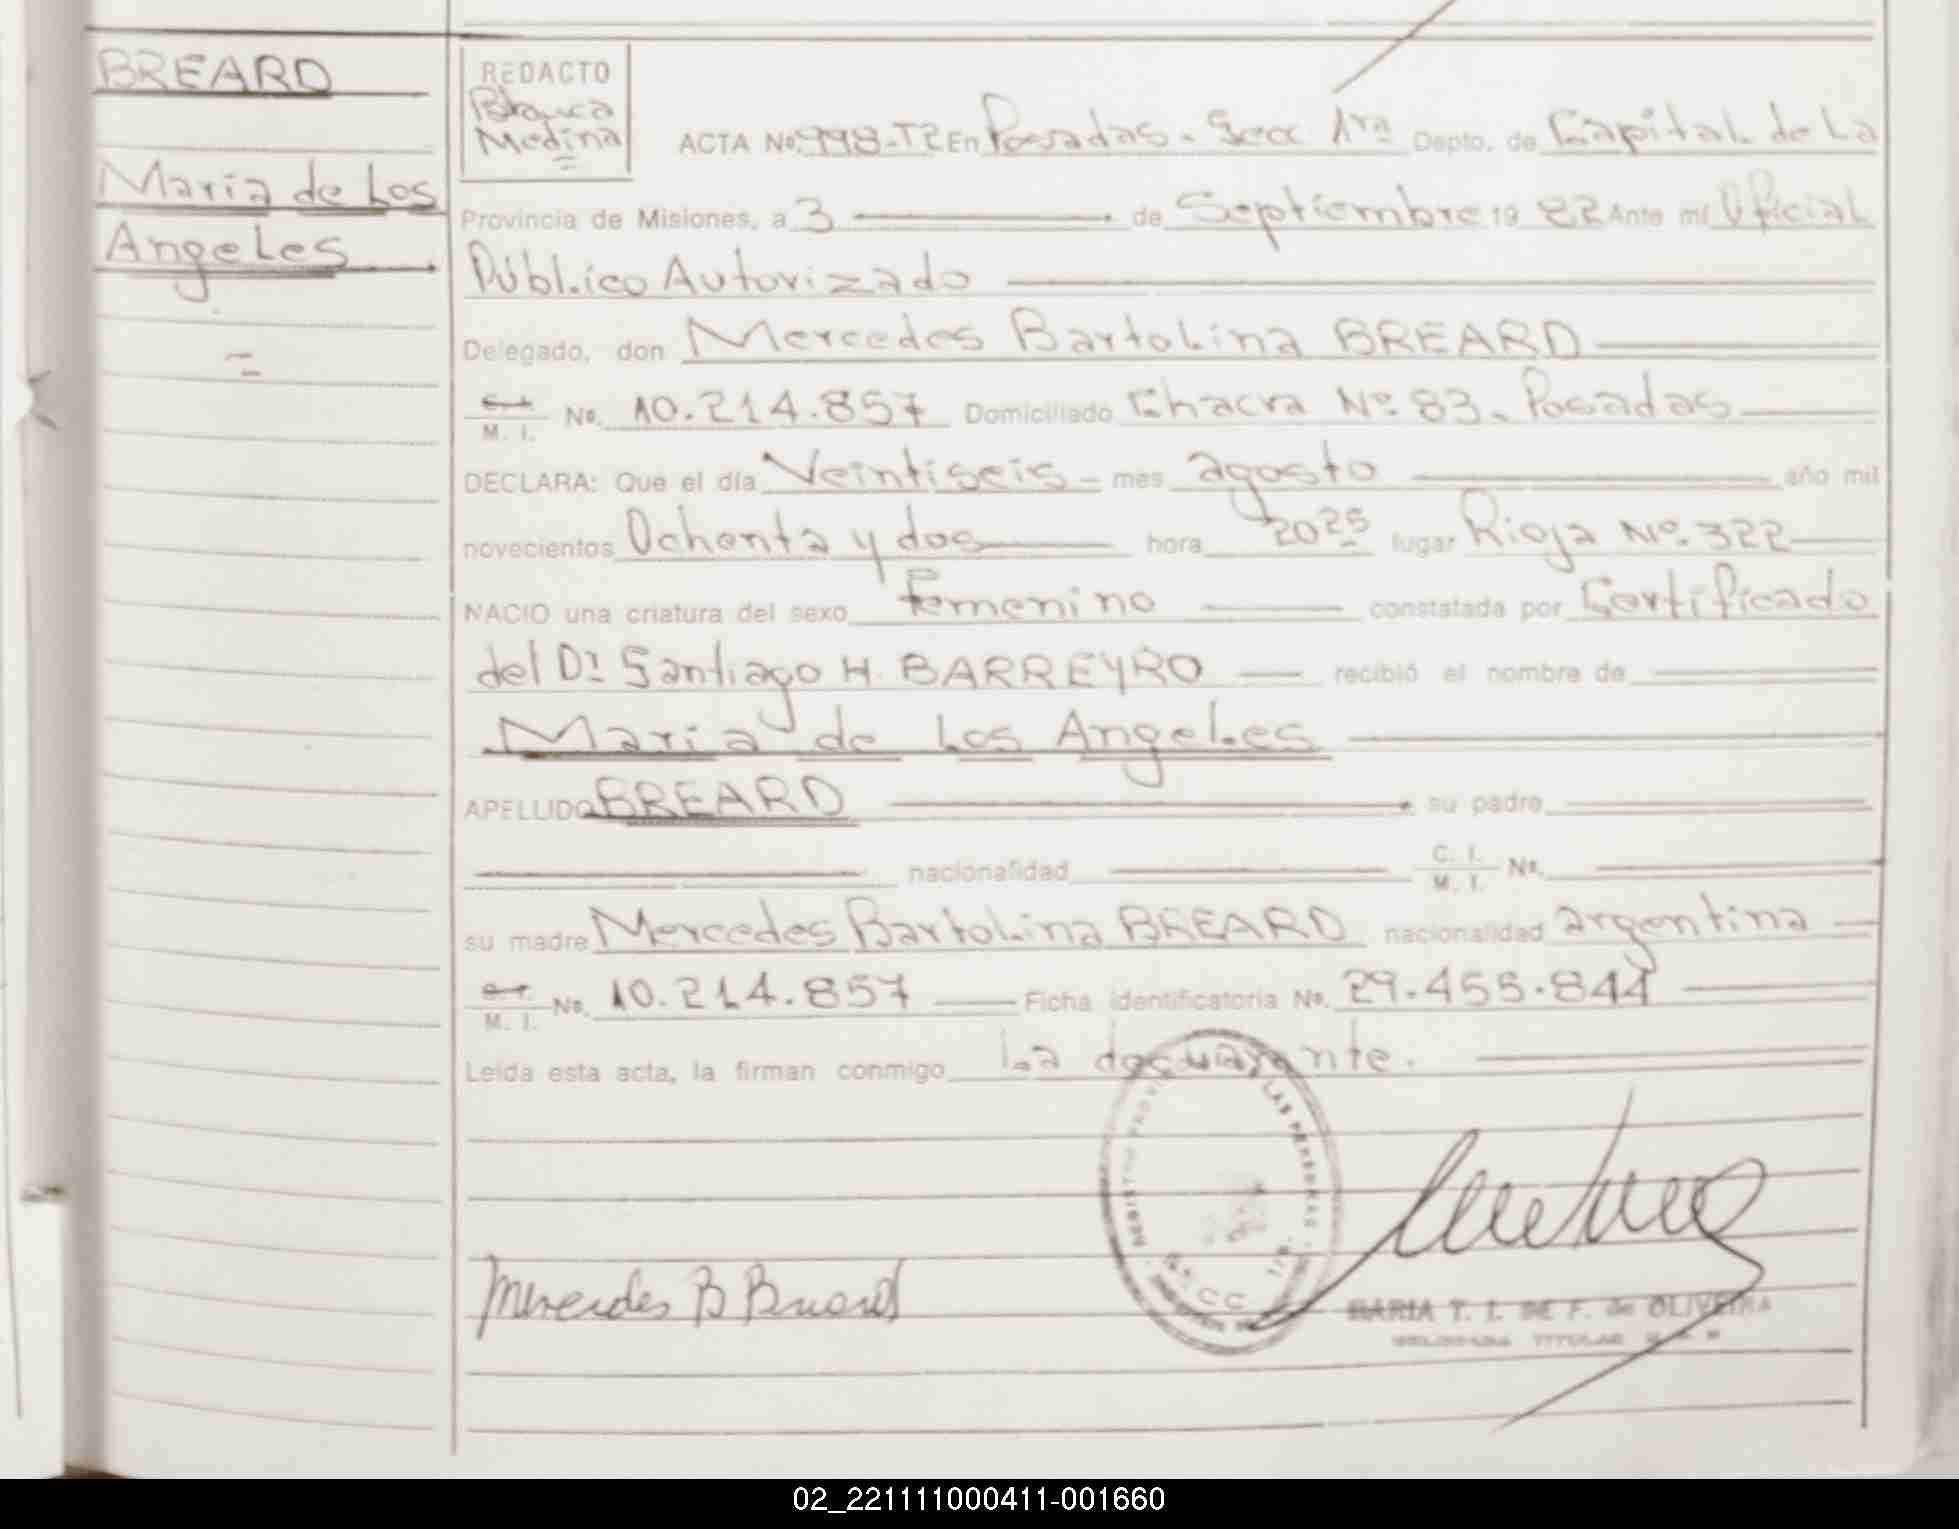 BREARD
María de Los
Angeles
=
REDACTO
Blanca
Medina
=
ACTA Nº. 998-T2 En Posadas - Secc 1ra Depto. de Capital de La
Provincia de Misiones, a 3 de Septiembre 19 82 Ante mí Oficial
Público Autorizado
Delegado, don Mercedes Bartolina BREARD
C. I. M. I. Nº. 10.214.857 Domiciliado Chacra Nº 83. Posadas
DECLARA: Que el día Veintiseis - mes agosto año mil
novecientos Ochenta y dos hora 20 25 lugar Rioja Nº. 322
NACIO una criatura del sexo Femenino constatada por Certificado
del Dr Santiago H. BARREYRO recibió el nombre de
María de Los Angeles
APELLIDO BREARD su padre
nacionalidad C. I. M. I. Nº.
su madre Mercedes Bartolina BREARD nacionalidad argentina
C. I. M. I. Nº. 10.214.857 Ficha identificatoria Nº. 29.455.844
Leída esta acta, la firman conmigo La declarante.
REGISTRO PROV LAS PERSONAS
Mercedes B Breard
MARIA T. I. DE F. de OLIVEIRA
DELEGADA TITULAR
02_221111000411-001660